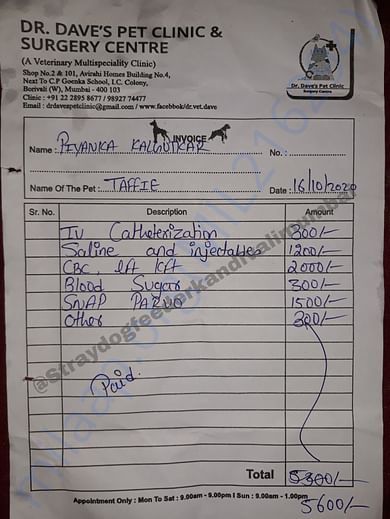 DR. DAVE'S PET CLINIC &
SURGERY CENTRE
(A Veterinary Multispeciality Clinic)
Shop No.2 & 101, Avirahi Homes Building No.4,
Next To C.P Goenka School, I.C. Colony,
Borivali (W), Mumbai - 400 103
Clinic : +91 22 2895 8677 / 98927 74477
Email : drdavespetclinic@gmail.com / www.facebbok/dr.vet.dave
Dr. Dave's Pet Clinic
Surgery Centre
INVOICE
Name : PIYANKA KALGUTKAR No. :
Name Of The Pet : TAFFIE Date : 16/10/2020
Sr. No. Description Amount
IV Catheterization 300/-
Saline and injectables 1200/-
CBC, lft kft 2000/-
Blood Sugar 300/-
SNAP PARVO 1500/-
Other 300/-
@straydogfeederkandivalimumbai
Paid.
Total 5300/-
5600/-
Appointment Only : Mon To Sat : 9.00am - 9.00pm I Sun : 9.00am - 1.00pm